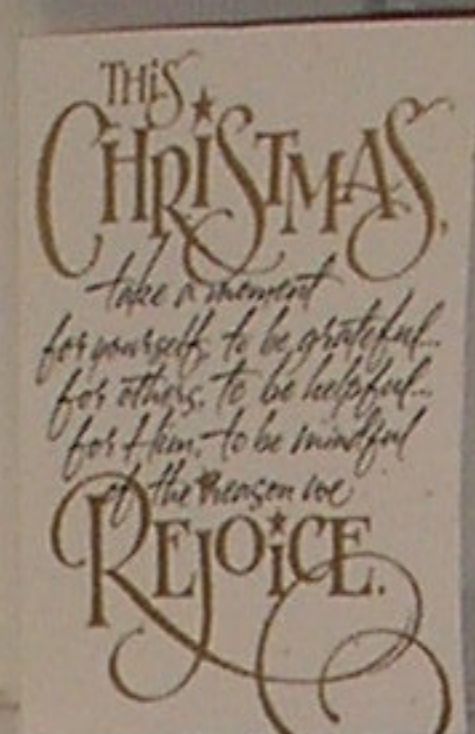 THiS
CHRiSTMAS,
take a moment
for yourself, to be grateful...
for others, to be helpful...
for Him, to be mindful
of the Reason we
REJOiCE.